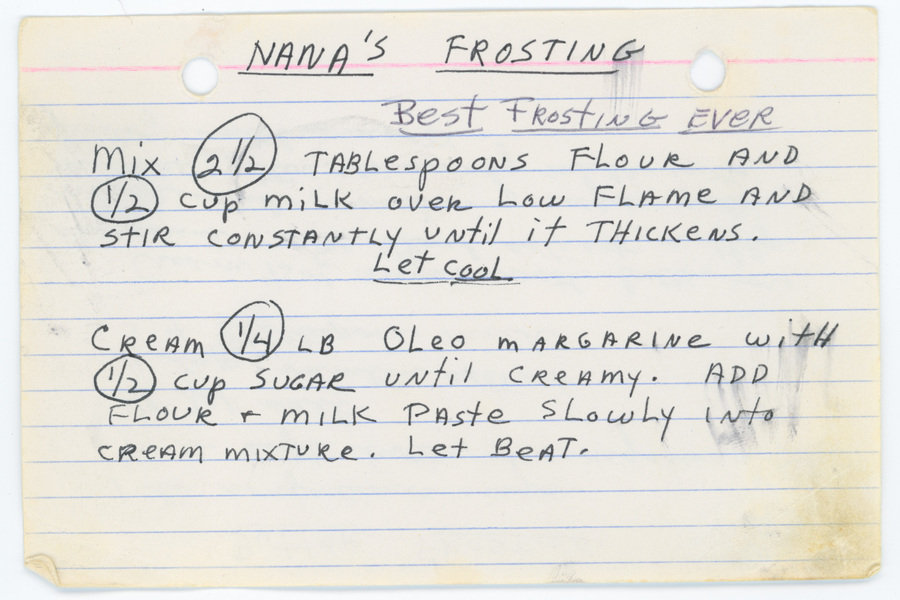 NANA'S FROSTING
Best FROSTING EVER
Mix 2 1/2 TABLESPOONS FLOUR AND
1/2 cup milk over Low FLAME AND
STIR CONSTANTLY until it THICKENS.
Let COOL
CREAM 1/4 LB OLeo mARGARINE with
1/2 cup SUGAR until CREAMY. ADD
FLOUR + MILK PASTE SLOWLY INTO
CREAM MIXTURE. Let BEAT.